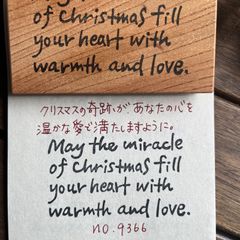 of Christmas fill
your heart with
warmth and love.
クリスマスの奇跡があなたの心を
温かな愛で満たしますように。
May the miracle
of Christmas fill
your heart with
warmth and love.
no.9366